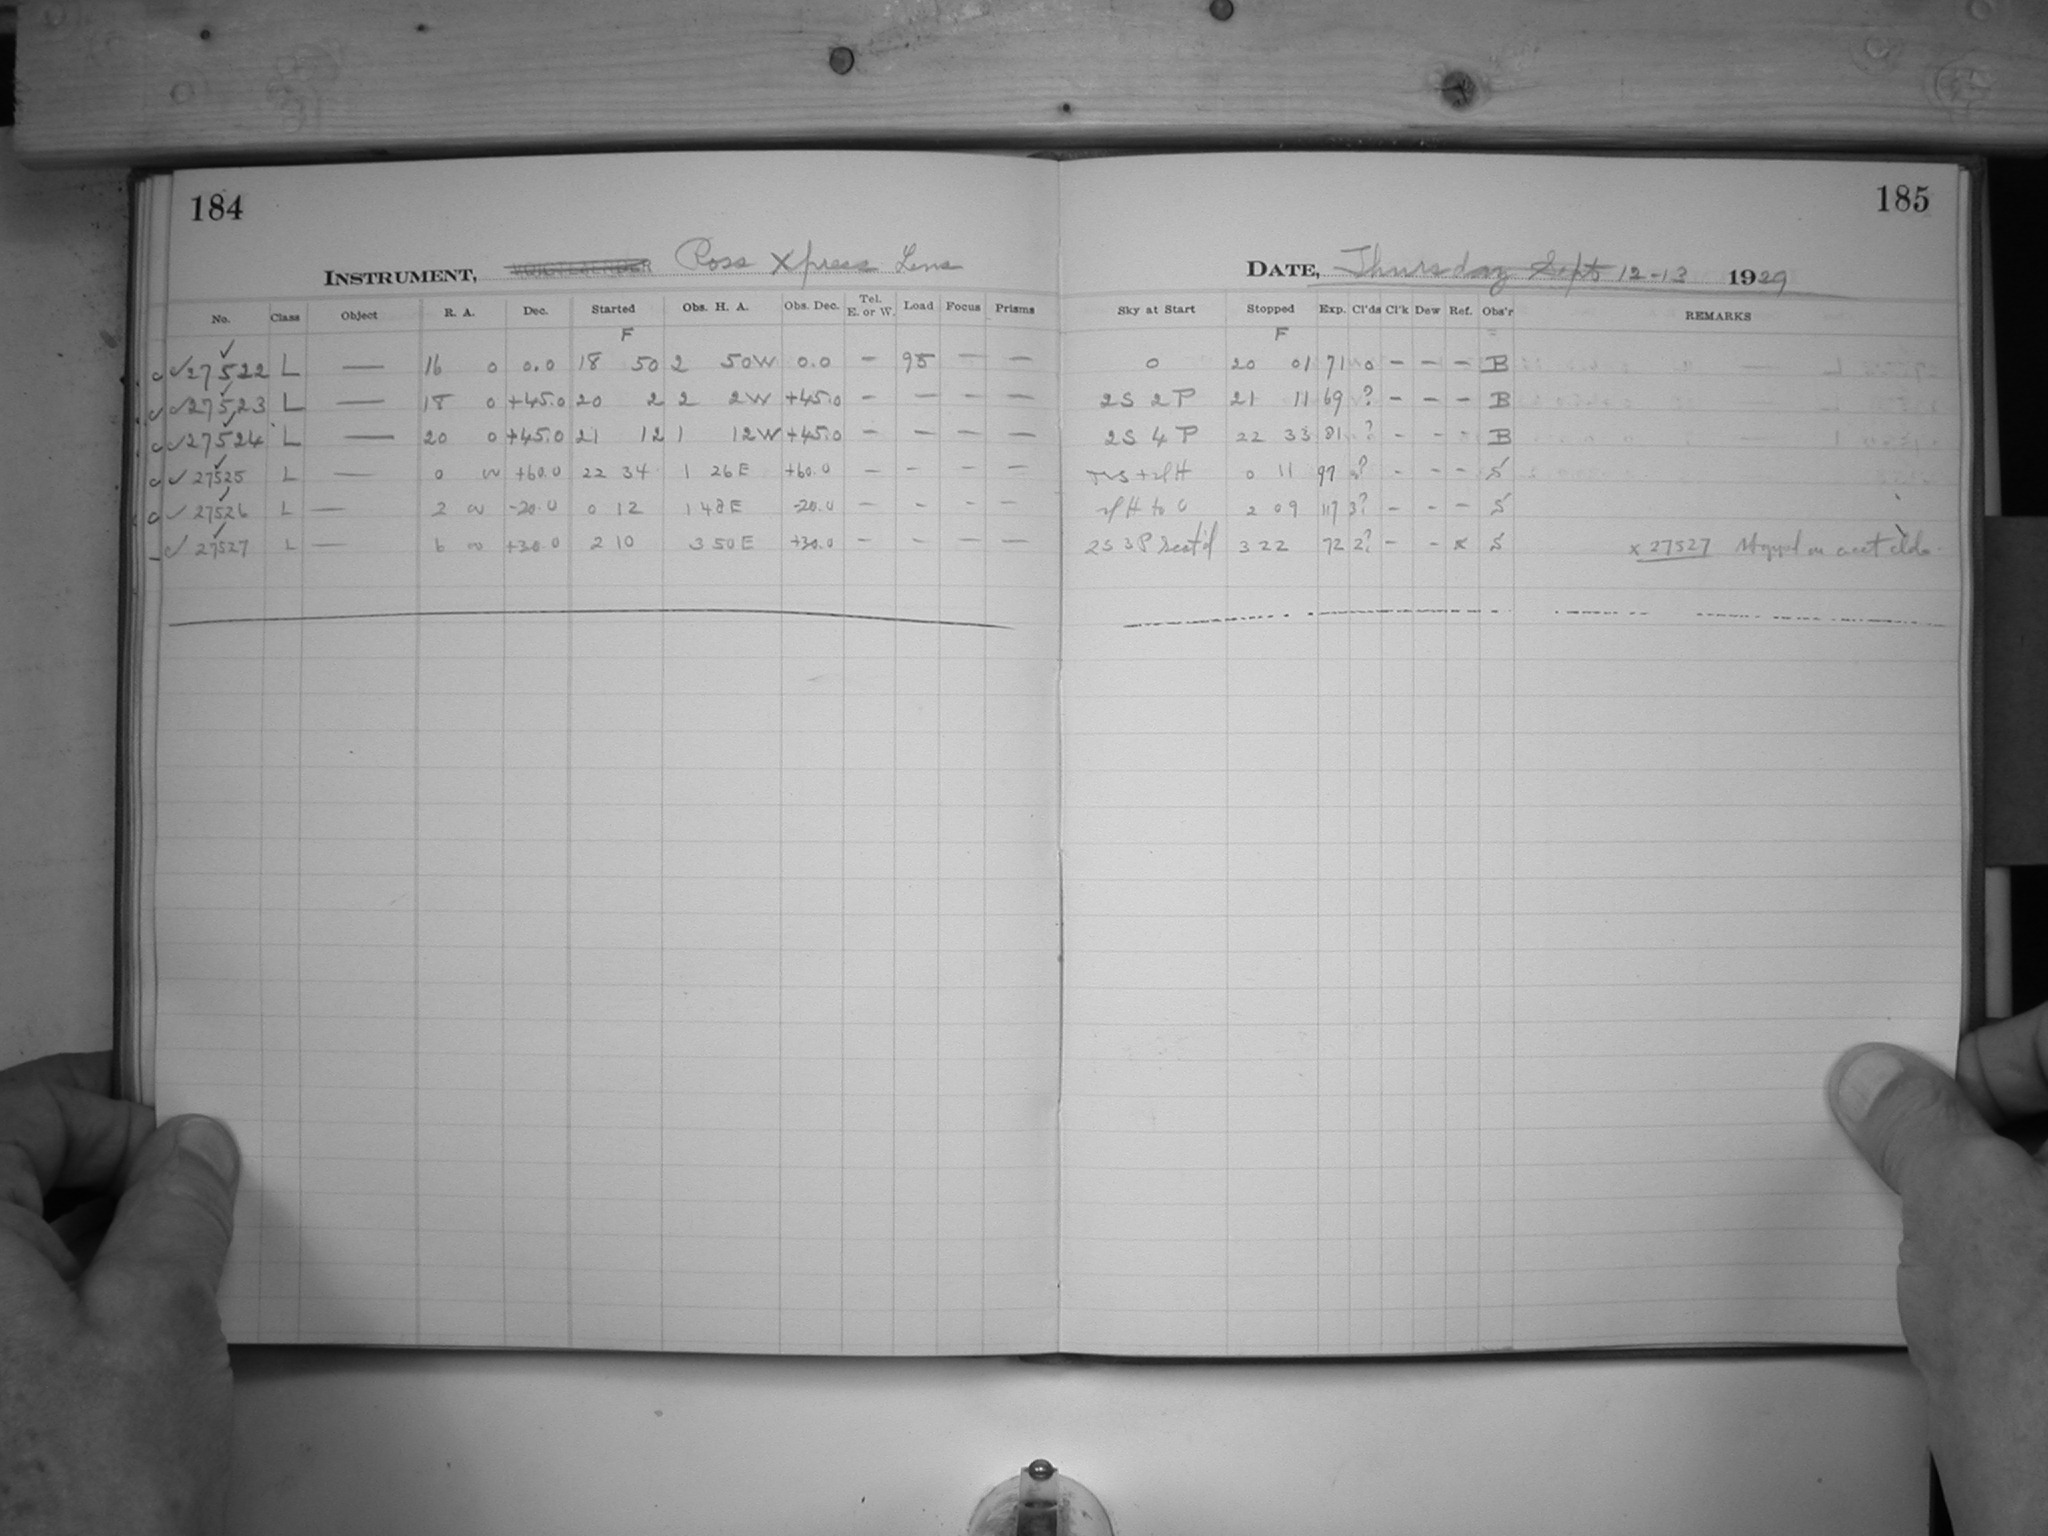 184
185
INSTRUMENT, VOIGTLENDER Ross Xpress Lens
DATE, Thursday Sept 12-13 1929
No. Class Object R. A. Dec. Started Obs. H. A. Obs. Dec. Tel. E. or W. Load Focus Prisms Sky at Start Stopped Exp. Cl'ds Cl'k Dew Ref. Obs'r REMARKS
F F
✓27522 L — 16 0 0.0 18 50 2 50W 0.0 — 95 — — 0 20 01 71 0 — — — B
✓27523 L — 18 0 +45.0 20 2 2 2W +45.0 — — — — 2S 2P 21 11 69 ? — — — B
✓27524 L — 20 0 +45.0 21 12 1 12W +45.0 — — — — 2S 4P 22 33 81 ? — — — B
✓27525 L — 0 00 +60.0 22 34 1 26E +60.0 — — — — 0 11 97 ? — — — S
✓27526 L — 2 00 -20.0 0 12 1 48E -20.0 — — — — 2 09 117 3? — — — S
✓27527 L — 6 00 +30.0 2 10 3 50E +30.0 — — — — 2S 3P scat'd 3 22 72 2? — — x S x 27527 Stopped on acct clds.